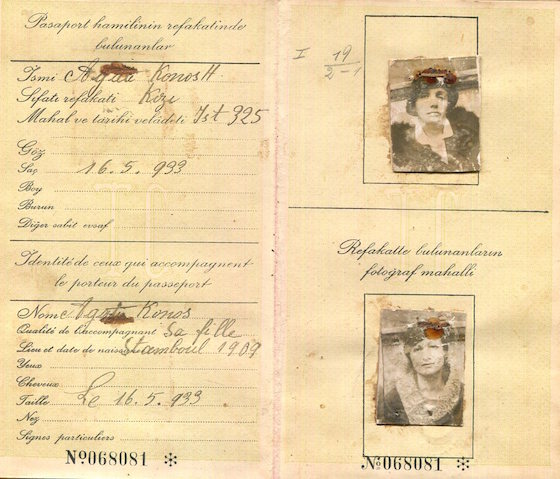 Pasaport hamilinin refakatinde
bulunanlar
İsmi Konos
Sıfatı refakati Kızı
Mahal ve tarihi velâdeti İst 325
Göz
Saç 16.5.933
Boy
Burun
Diğer sabit evsaf
Identité de ceux qui accompagnent
le porteur du passeport
Nom Konos
Qualité de l'accompagnant Sa fille
Lieu et date de naissance Stamboul 1909
Yeux
Cheveux
Taille Le 16.5.933
Nez
Signes particuliers
No068081 ✻
I 19
2-1
Refakatte bulunanların
fotoğraf mahalli
No068081 ✻